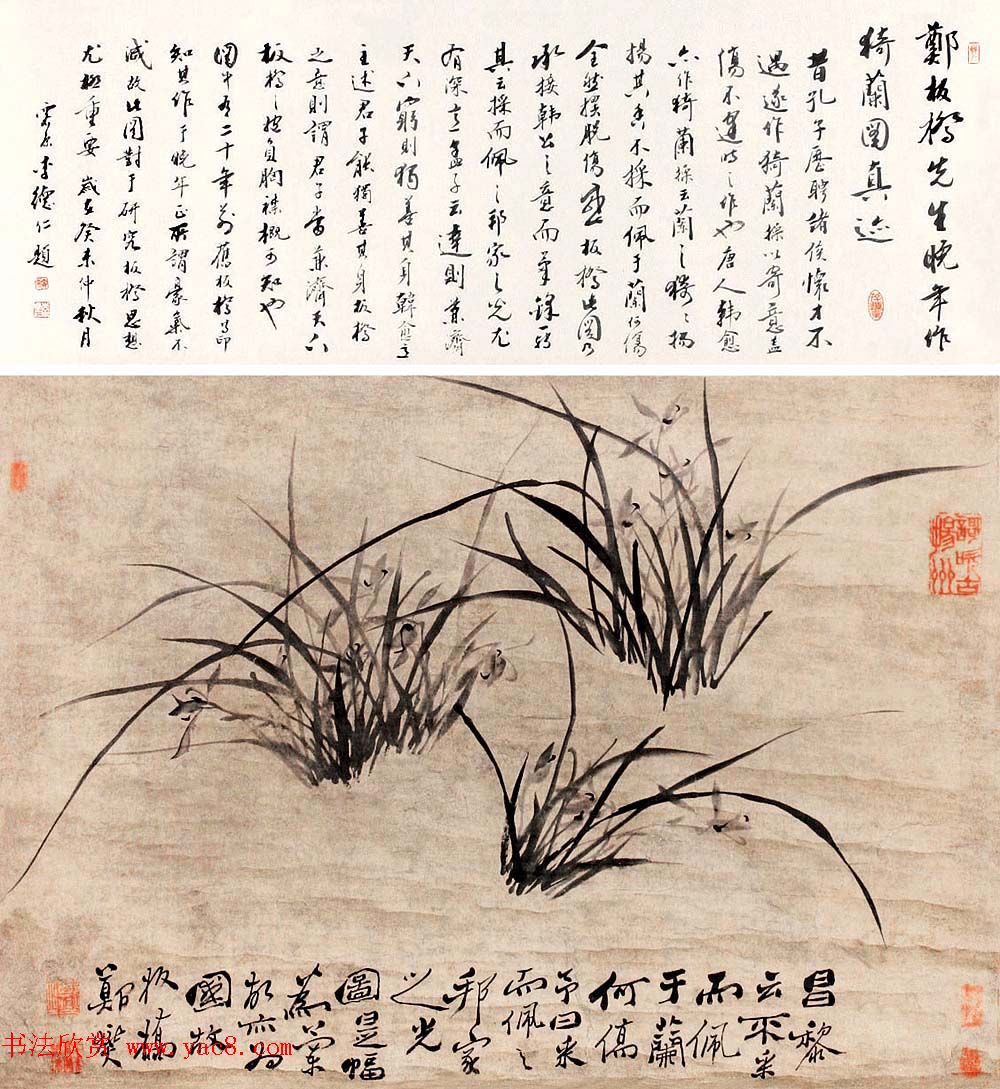 鄭板橋先生晚年作
猗蘭图真迹
昔孔子歷聘諸侯懷才不
遇遂作猗蘭操以寄意盖
傷不逢時之作也唐人韓愈
亦作猗蘭操云蘭之猗猗揚
揚其香不採而佩于蘭何傷
全然摆脱傷感板橋此图乃
承接韓公之意而筆鋒
其云採而佩之邦家之光尤
有深意孟子云達則兼濟
天下窮則独善其身韓愈
主述君子能獨善其身板橋
之意則謂君子當兼濟天下
板橋之抱負胸襟概可知也
图中有二十年前舊板橋印
知其作于晚年正所謂豪氣不
减故此图對于研究板橋思想
尤極重要歲在癸未仲秋月
李德仁題
歌吹古揚州
昌黎
云不采
而佩
于蘭
何傷
予曰采
而佩之
邦家
之光
圖是幅
為
故亦為
國故
板橋
鄭燮
书法欣赏 www.yac8.com